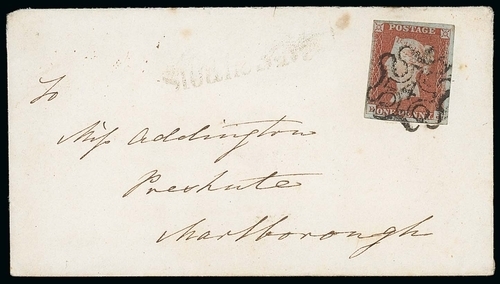 POSTAGE
ONE PENNY
To
Miss Addington
Preshute
Marlborough